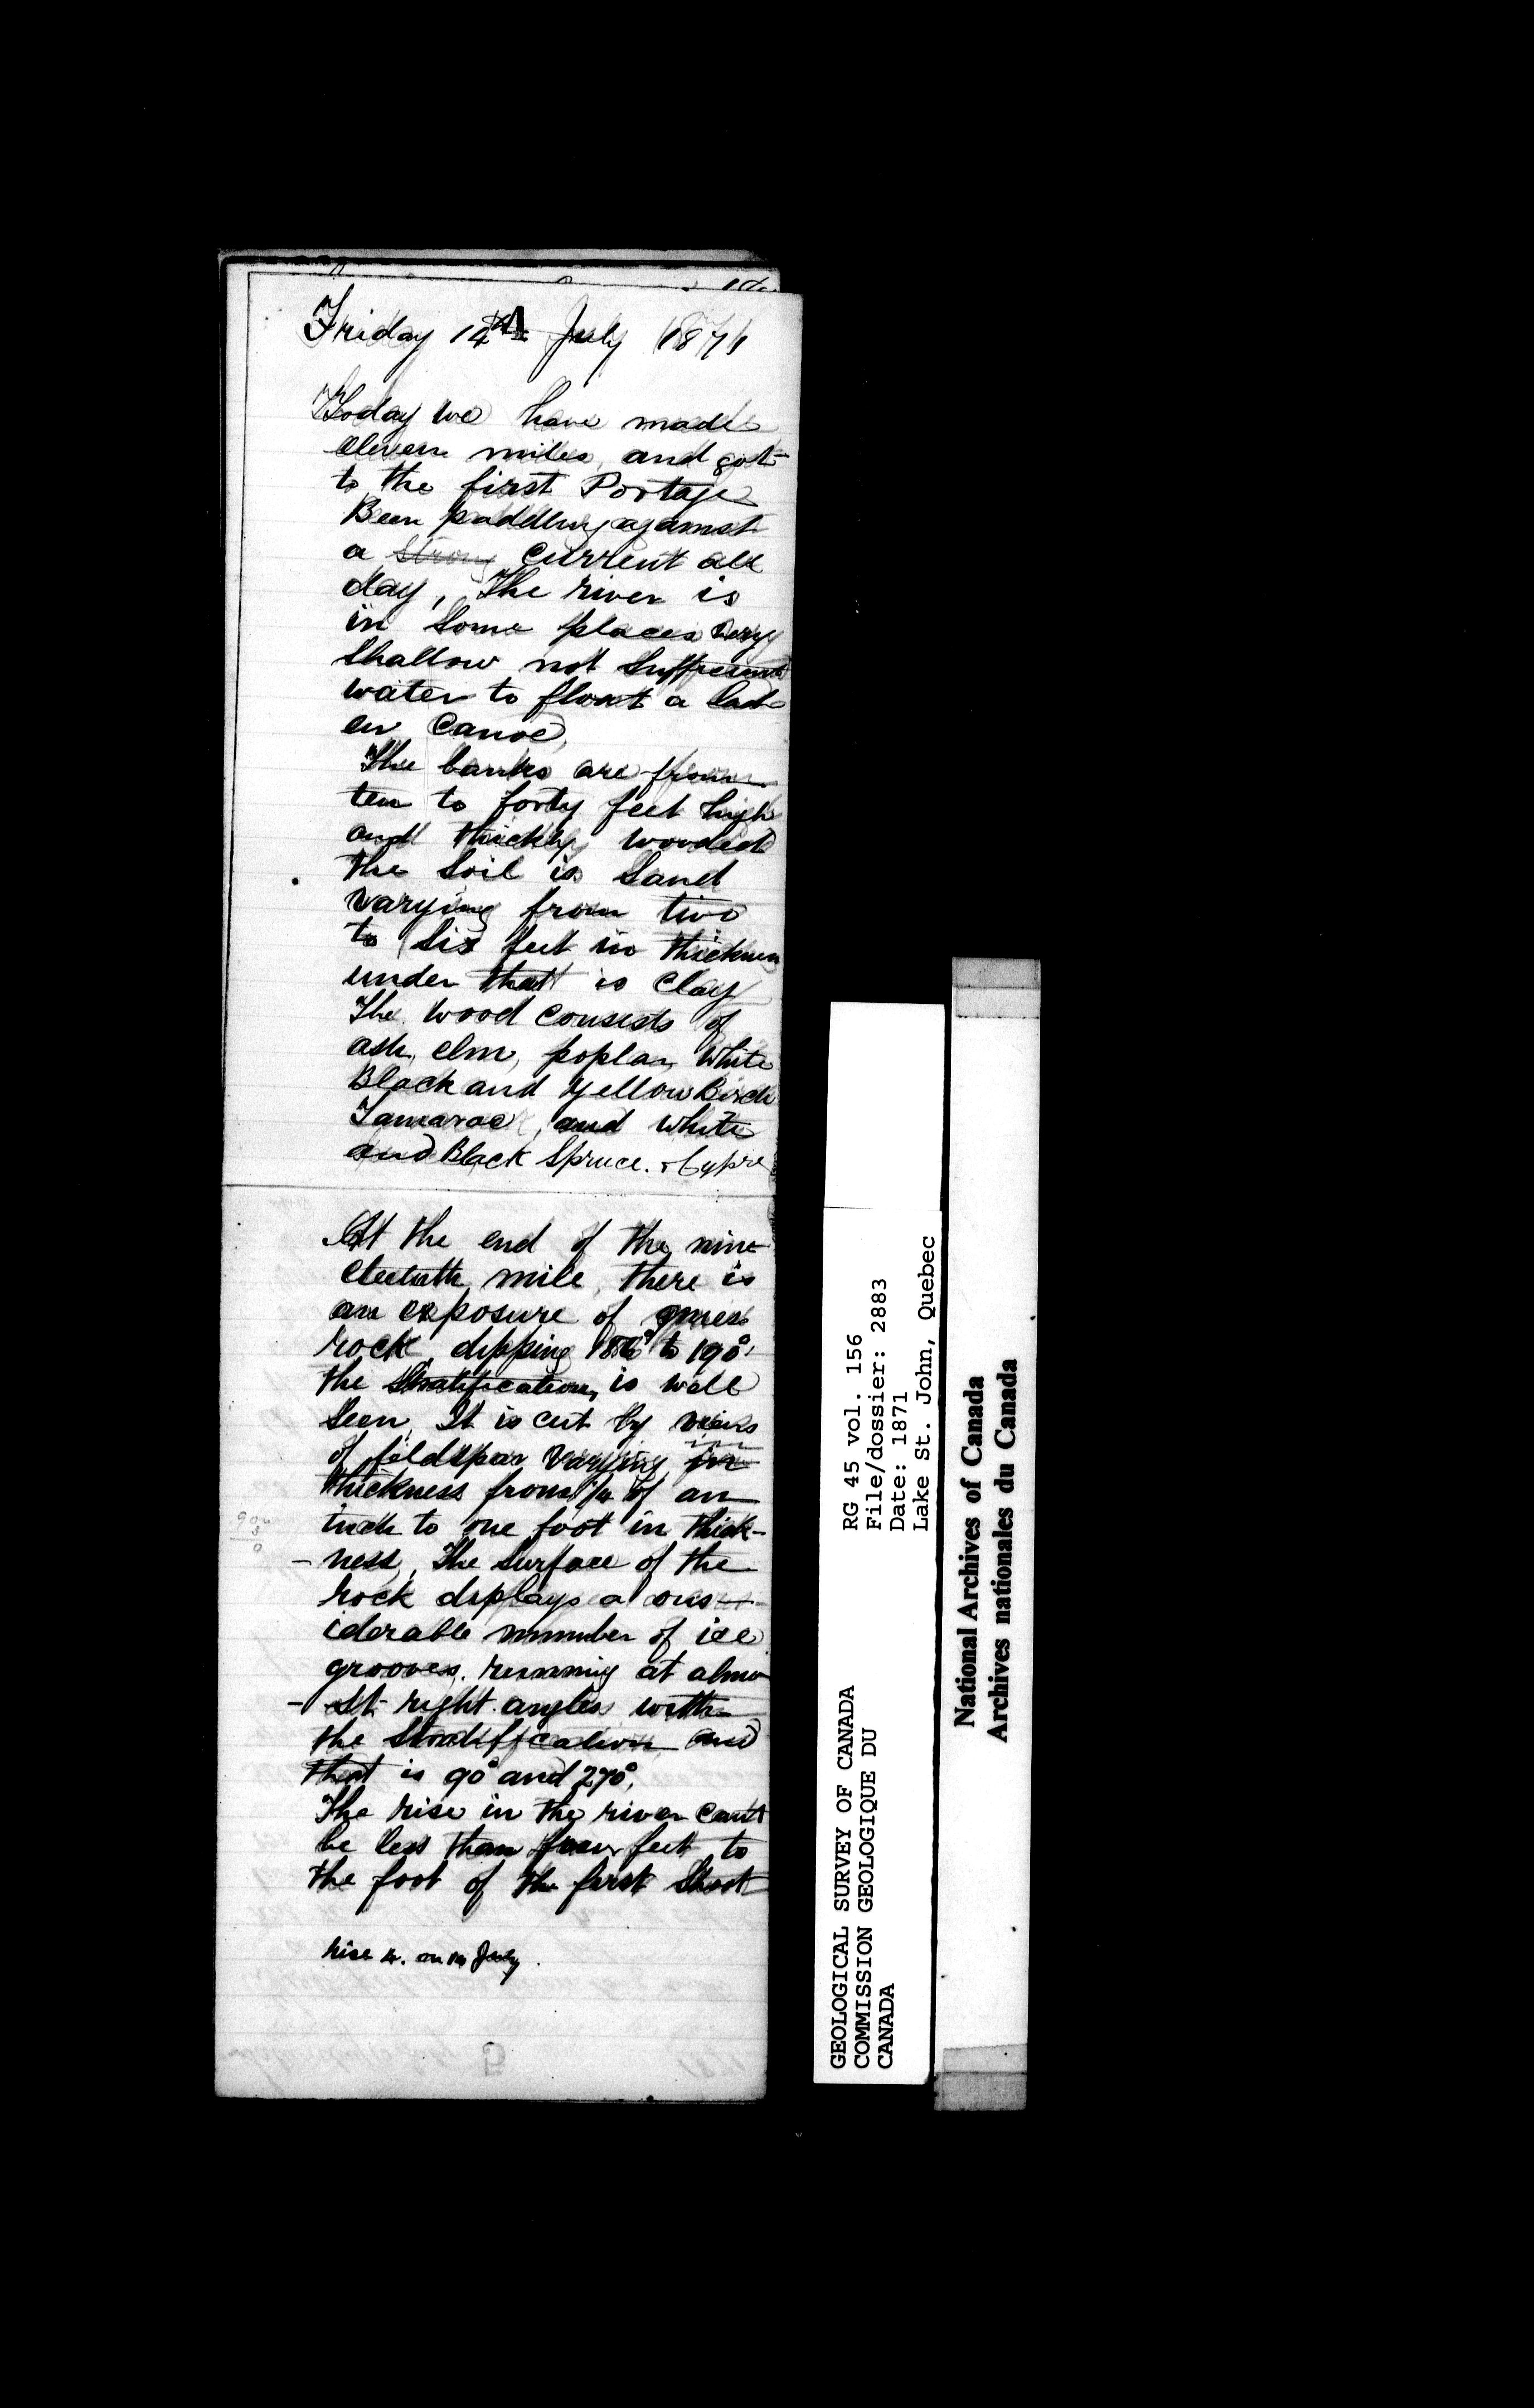 Friday 14th July 1871
Today we have made
eleven miles, and got
to the first Portage
Been paddling against
a strong current all
day, The river is
in some places very
shallow not suffecient
water to float a lad-
en Canoe,
The banks are from
ten to forty feet high
and thickly wooded
the soil is sand
varying from two
to six feet in thickness
under that is Clay
The wood consists of
ash, elm, poplar, White
Black and Yellow Birch
Tamarac, and White
and Black Spruce. & Cypre
At the end of the nine
teeth mile, there is
an exposure of gneis
rock, dipping to 190°
the Stratification, is well
seen, It is cut by veins
of feldspar varying in
thickness from 1/4 of an
inch to one foot in thick-
- ness, The surface of the
rock displays a cons-
iderable number of ice
grooves. running at almo
- st right angles with
the stratification and
that is 90° and 270°,
The rise in the river cant
be less than four feet to
the foot of the first Shoot
rise 4. on 14 July.
GEOLOGICAL SURVEY OF CANADA
COMMISSION GEOLOGIQUE DU
CANADA
RG 45 vol. 156
File/dossier: 2883
Date: 1871
Lake St. John, Quebec
National Archives of Canada
Archives nationales du Canada